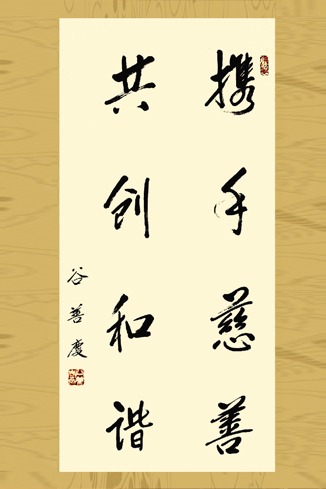 携手慈善
共创和谐
谷善庆